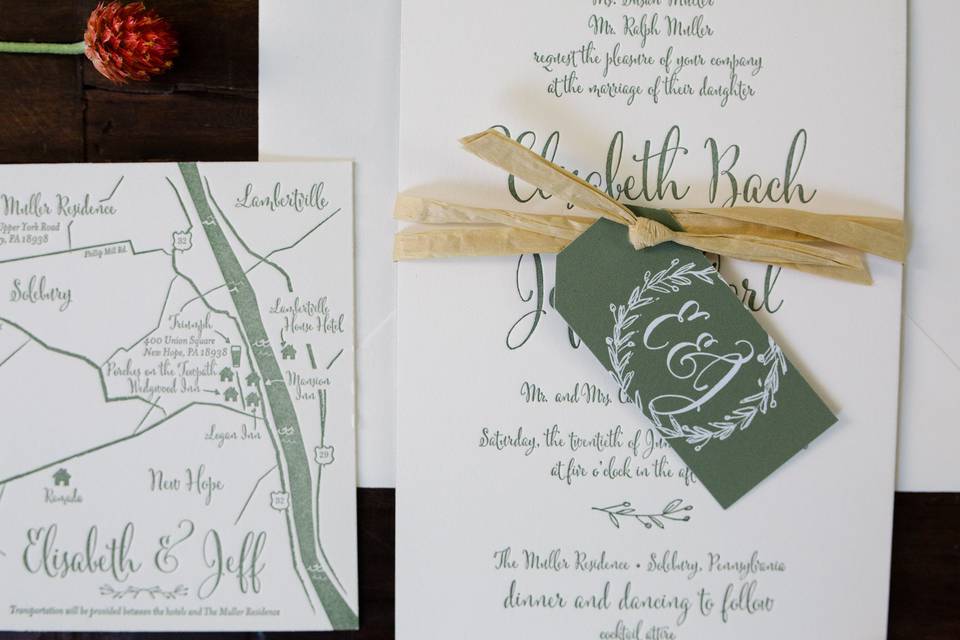 Ms. Susan Muller
Mr. Ralph Muller
request the pleasure of your company
at the marriage of their daughter
Elizabeth Bach
Mr. and Mrs.
Saturday, the twentieth of
at five o'clock in the
The Muller Residence • Solebury, Pennsylvania
dinner and dancing to follow
cocktail attire
E&J
Muller Residence
Upper York Road
PA 18938
Phillip Mill Rd.
32
Lambertville
Solebury
Lambertville
House Hotel
Triumph
400 Union Square
New Hope, PA 18938
Porches on the Towpath
Wedgwood Inn
Mansion
Inn
Logan Inn
29
32
Ramada
New Hope
Elisabeth & Jeff
Transportation will be provided between the hotels and The Muller Residence